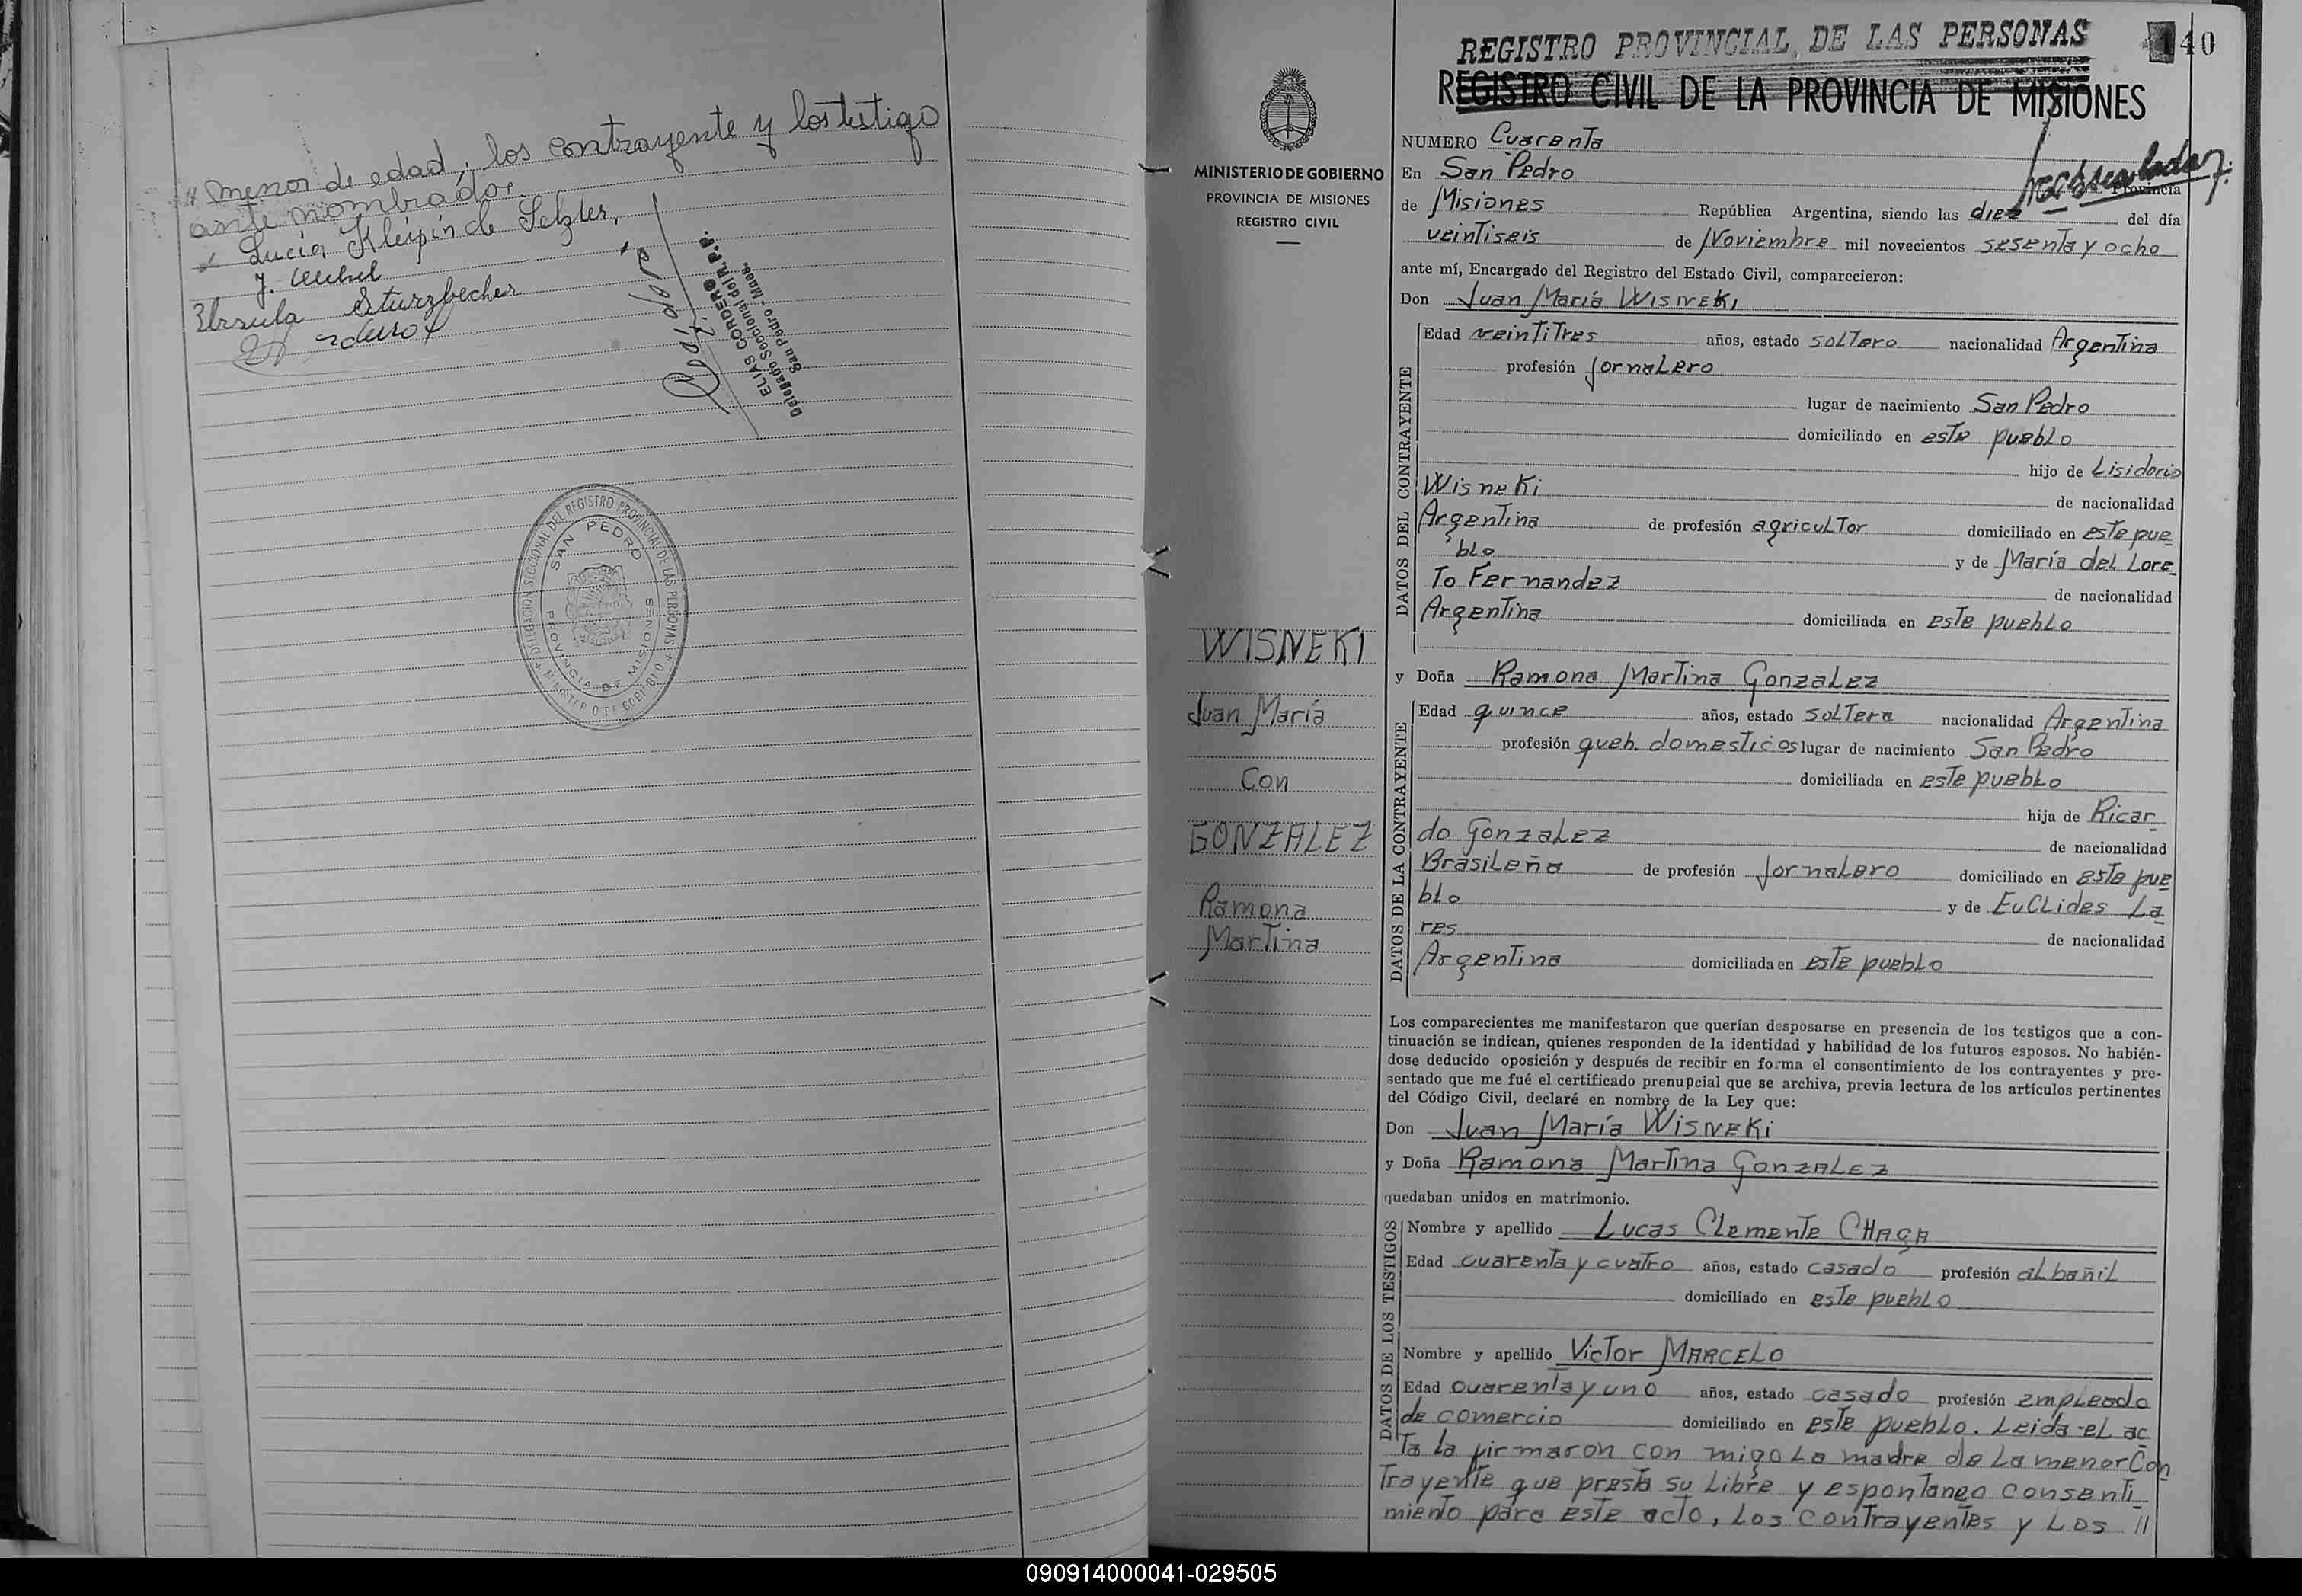 " menor de edad, los contrayente y los testigo
ante nombrador.
Lucia Kleipin de Setzler,
J.
Ursula Sturzbecher
ELIAS CORDERO
Delegado Seccional del R.P.P.
San Pedro - Mnes.
DELEGACION SECCIONAL DEL REGISTRO PROVINCIAL DE LAS PERSONAS
MINISTERIO DE GOBIERNO
SAN PEDRO
PROVINCIA DE MISIONES
MINISTERIO DE GOBIERNO
PROVINCIA DE MISIONES
REGISTRO CIVIL
WISNEKI
Juan María
Con
GONZALEZ
Ramona
Martina
REGISTRO PROVINCIAL DE LAS PERSONAS
40
REGISTRO CIVIL DE LA PROVINCIA DE MISIONES
NUMERO Cuarenta
En San Pedro Provincia
de Misiones República Argentina, siendo las diez del día
veintiseis de Noviembre mil novecientos sesenta y ocho
ante mí, Encargado del Registro del Estado Civil, comparecieron:
Don Juan María WISNEKI
DATOS DEL CONTRAYENTE
Edad veintitres años, estado soltero nacionalidad Argentina
profesión Jornalero
lugar de nacimiento San Pedro
domiciliado en este pueblo
hijo de Lisidorio
Wisneki de nacionalidad
Argentina de profesión agricultor domiciliado en este pue
blo y de María del Lore
to Fernandez de nacionalidad
Argentina domiciliada en este pueblo
y Doña Ramona Martina Gonzalez
DATOS DE LA CONTRAYENTE
Edad quince años, estado soltera nacionalidad Argentina
profesión queh. domesticos lugar de nacimiento San Pedro
domiciliada en este pueblo
hija de Ricar
do Gonzalez de nacionalidad
Brasileña de profesión Jornalero domiciliado en este pue
blo y de Euclides La
res de nacionalidad
Argentina domiciliada en este pueblo
Los comparecientes me manifestaron que querían desposarse en presencia de los testigos que a con-
tinuación se indican, quienes responden de la identidad y habilidad de los futuros esposos. No habién-
dose deducido oposición y después de recibir en forma el consentimiento de los contrayentes y pre-
sentado que me fué el certificado prenupcial que se archiva, previa lectura de los artículos pertinentes
del Código Civil, declaré en nombre de la Ley que:
Don Juan María WISNEKI
y Doña Ramona Martina GONZALEZ
quedaban unidos en matrimonio.
DATOS DE LOS TESTIGOS
Nombre y apellido Lucas Clemente CHAGA
Edad cuarenta y cuatro años, estado casado profesión albañil
domiciliado en este pueblo
Nombre y apellido Victor MARCELO
Edad cuarenta y uno años, estado casado profesión empleado
de comercio domiciliado en este pueblo. Leida el ac
ta la firmaron con migo la madre de la menor Con
trayente que presta su libre y espontaneo consenti
miento para este acto, los contrayentes y los "
090914000041-029505